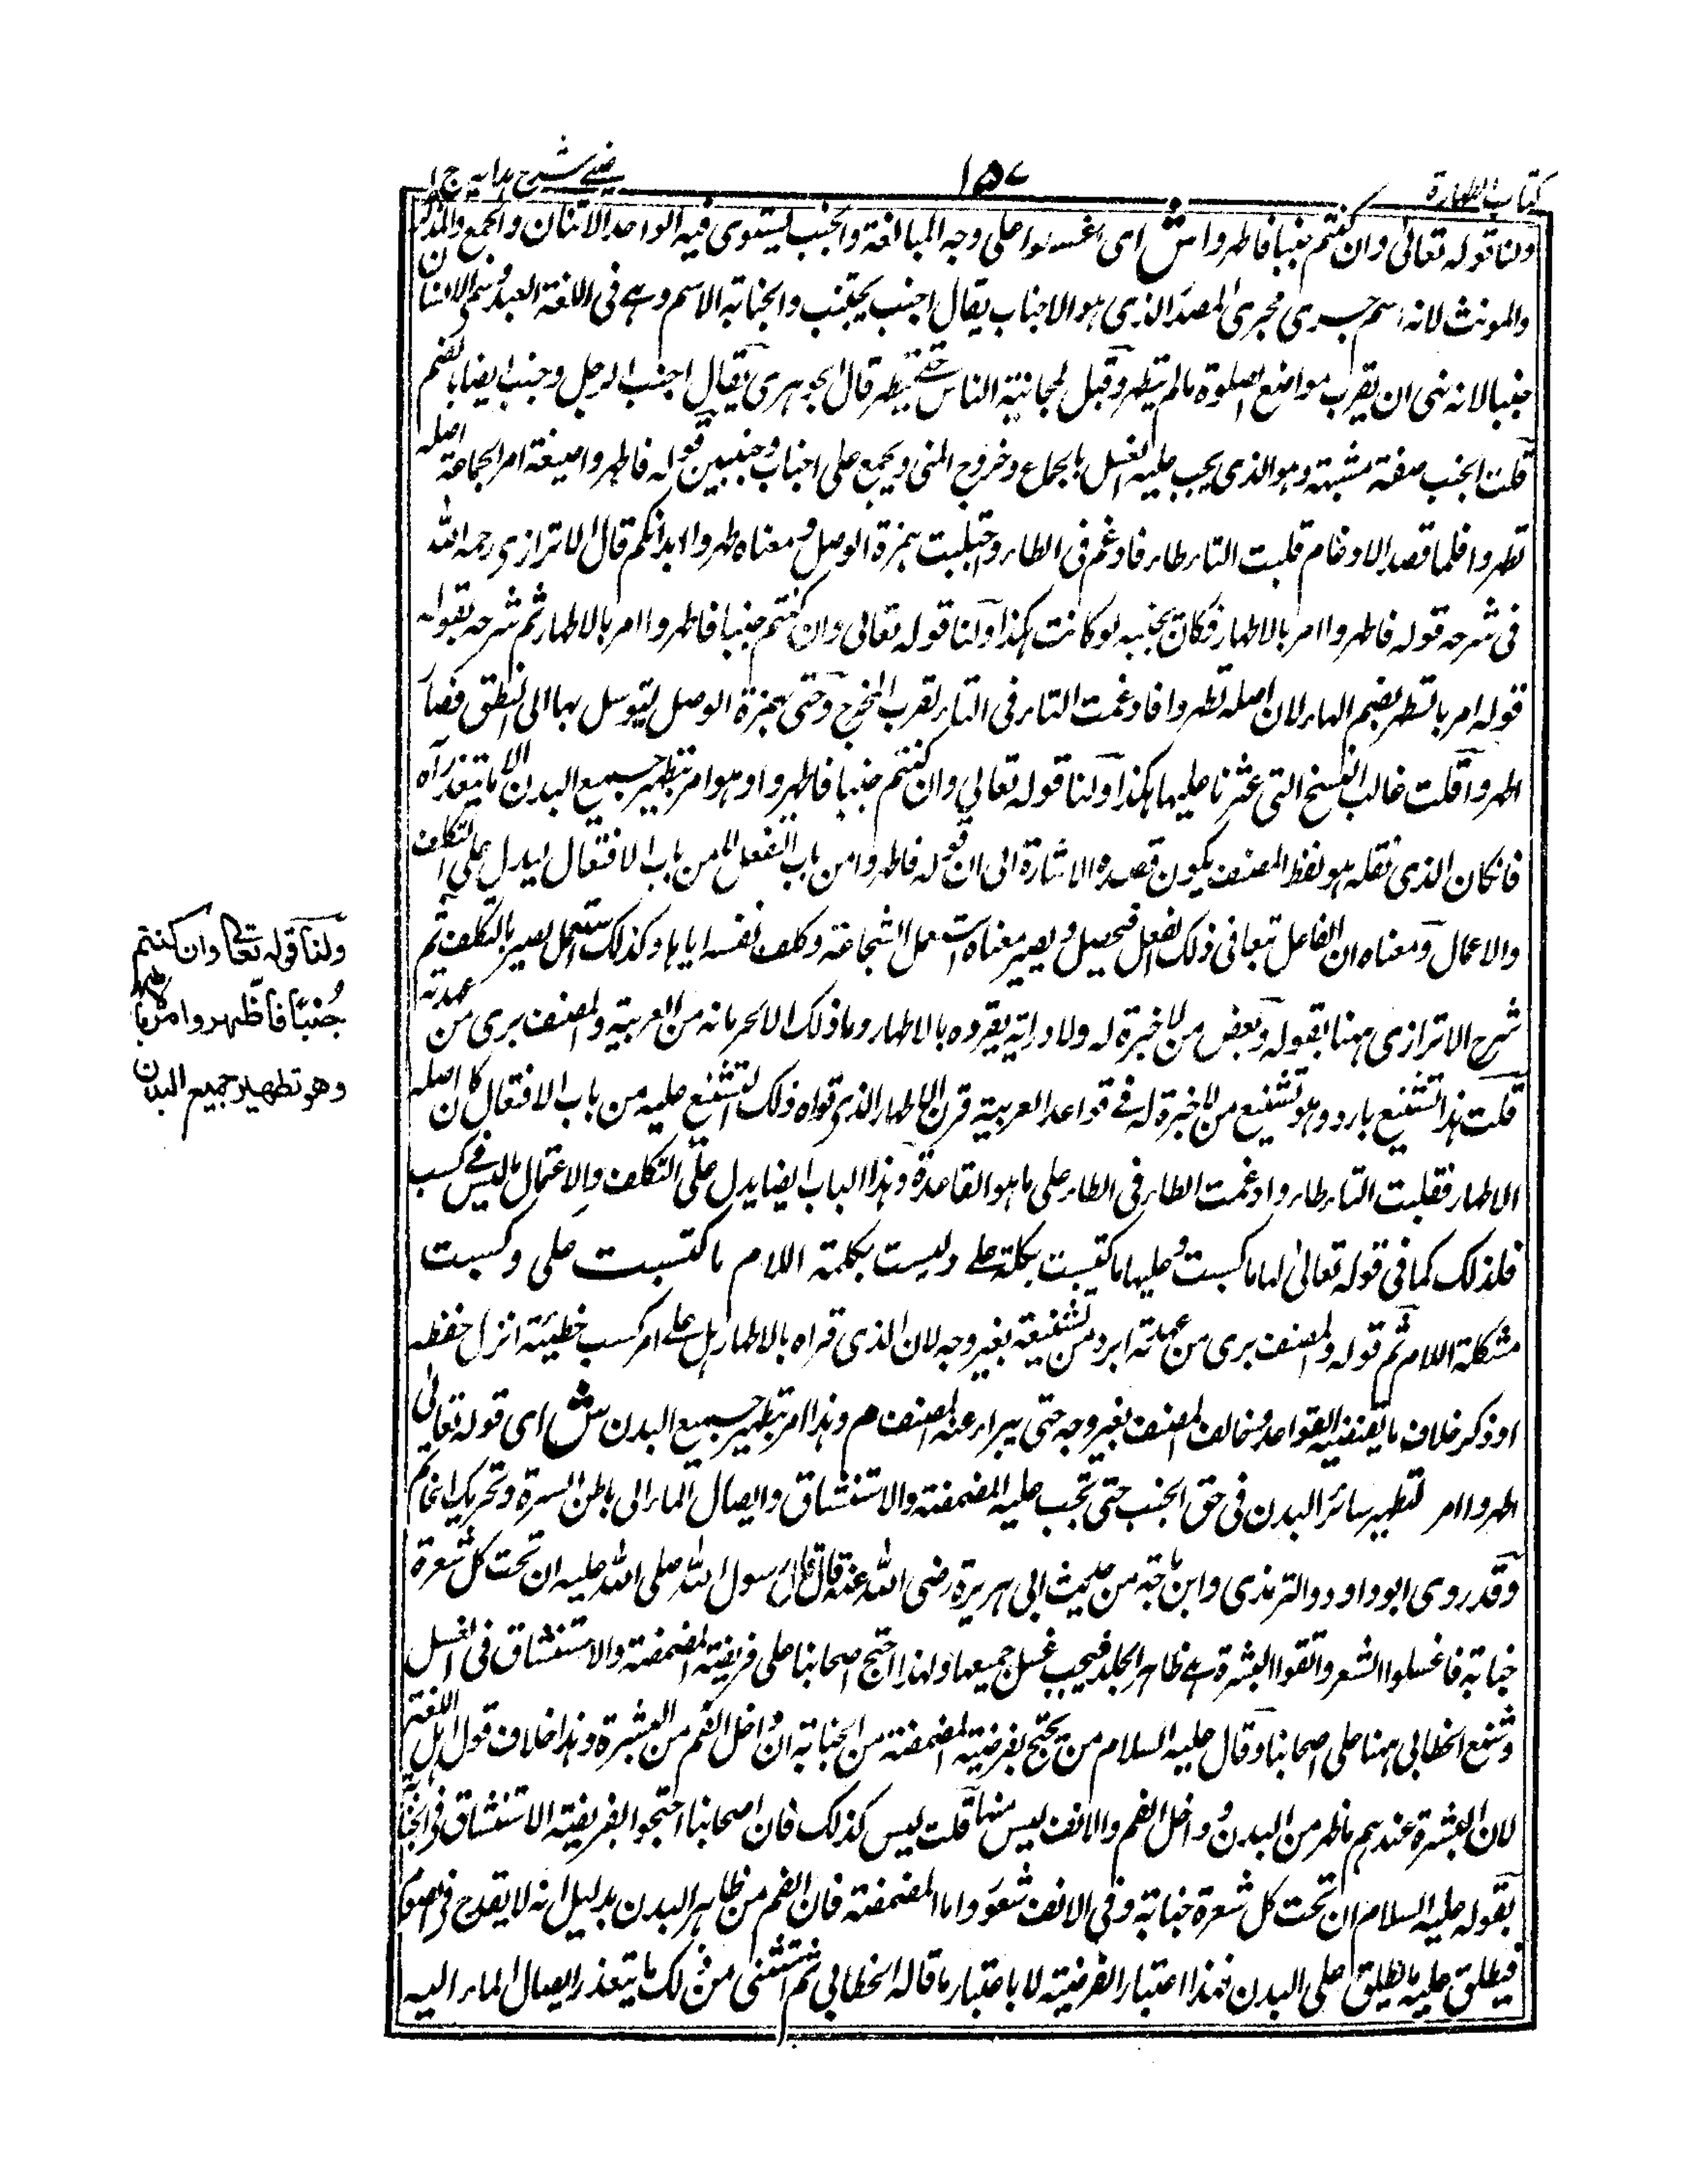 كتاب الطهارة
١٥٧
عينى شرح هدايه ج ١
ولنا قوله تعالى وان كنتم جنبا فاطهروا ش اى اغسلوا على وجه المبالغة والجنب يستوى فيه الواحد الاثنان والجمع والمذكر
والمونث لانه اسم جرى مجرى المصدر الذى هو الاجناب يقال اجنب يجتنب والجنابة الاسم وهى فى اللغة البعد وسمى الانسان
جنبا لانه نهى ان يقرب مواضع الصلوة ما لم يتطهر وقيل لمجانبة الناس حتى يتطهر قال الجوهرى يقال اجنب الرجل وجنب ايضا بالضم
قلت الجنب صفة مشبهة وهو الذى يجب عليه الغسل بالجماع وخروج المنى ويجمع على اجناب وجنبين قوله فاطهروا صيغة امر الجماعة اصله
تطهروا فلما قصد الادغام قلبت التاء طاء فادغم فى الطاء واجتلبت همزة الوصل ومعناه طهروا ابدانكم قال الاترازى رحمه الله
فى شرحه قوله فاطهروا امر بالاطهار فكان بجنبه لو كانت هكذا ولنا قوله تعالى وان كنتم جنبا فاطهروا امر بالاطهار ثم شرحه بقوله
قوله امر بالتطهر بضم الهاء لان اصله تطهروا فادغمت التاء فى التاء لقرب المخرج وجئ بهمزة الوصل ليتوسل بها الى النطق فصار
اطهروا قلت غالب النسخ التى عثرنا عليها هكذا ولنا قوله تعالى وان كنتم جنبا فاطهروا وهو امر بتطهير جميع البدن الا ما يتعذر اه
فان كان الذى نقله هو لفظ المصنف يكون قصده الاشارة الى ان قوله فاطهروا من باب التفعل لا من باب الافتعال ليدل على التكلف
والاعمال ومعناه ان الفاعل تعانى ذلك الفعل ليحصل ويصير معناه استعمل الشجاعة وكلف نفسه اياها وكذلك استعمل يصير بالتكلف ثم
شرح الاترازى ههنا بقوله وبعض من لا خبرة له ولا دراية يقروه بالاطهار وما ذلك الا لحرمانه من العربية والمصنف برى من عهدته
قلت هذا تشنيع بارد وهو تشنيع من لا خبرة له فى قواعد العربية قرن الاطهار الذى قراه ذلك لتشنع عليه من باب الافتعال كان اصله
الاطهار فقلبت التاء طاء وادغمت الطاء فى الطاء على ما هو القاعدة وهذا الباب ايضا يدل على التكلف والاعتمال ما ليس فى كسب
فلذلك كما فى قوله تعالى لها ما كسبت وعليها ما اكتسبت بكلمة على وليست بكلمة اللام ما كتسبت على وكسبت
مشكلة اللام ثم قوله والمصنف برى من عهدته ابرد من تشنيعه بغير وجه لان الذى قراه بالاطهار هل على امر كسب خطيئة انزل حفظه
او ذكر خلاف ما يقتضيه القواعد وخالف المصنف بغير وجه حتى يبراء عنه المصنف م وهذا امر بتطهير جميع البدن ش اى قوله تعالى
اطهروا امر لتطهير سائر البدن فى حق الجنب حتى تجب عليه المضمضة والاستنشاق وايصال الماء الى باطن السرة وتحريك الخاتم
وقد روى ابو داود والترمذى وابن ماجه من حديث ابى هريرة رضى الله عنه قال قال رسول الله صلى الله عليه ان تحت كل شعرة
جنابة فاغسلوا الشعر واتقوا البشرة هى ظاهر الجلد فيجب غسل جميعها ولهذا احتج اصحابنا على فريضة المضمضة والاستنشاق فى الغسل
وشنع الخطابى ههنا على اصحابنا وقال عليه السلام من يحتج بفرضية المضمضة من الجنابة ان داخل الفم من البشرة وهذا خلاف قول اهل اللغة
لان البشرة عندهم ما ظهر من البدن وداخل الفم والانف ليس منها قلت ليس كذلك فان اصحابنا احتجوا لفريضة الاستنشاق فى الجنابة
بقوله عليه السلام ان تحت كل شعرة جنابة وفى الانف شعور واما المضمضة فان الفم من ظاهر البدن بدليل انه لا يقدح فى الصوم
فيطلق عليه ما يطلق على البدن فهذا اعتبار الفرضية لا باعتبار ما قاله الخطابى ثم استثنى من ذلك ما يتعذر ايصال الماء اليه
ولنا قوله تعالى وان كنتم
جُنبًا فاطّهروا امر بالاطهار
وهو تطهير جميع البدن